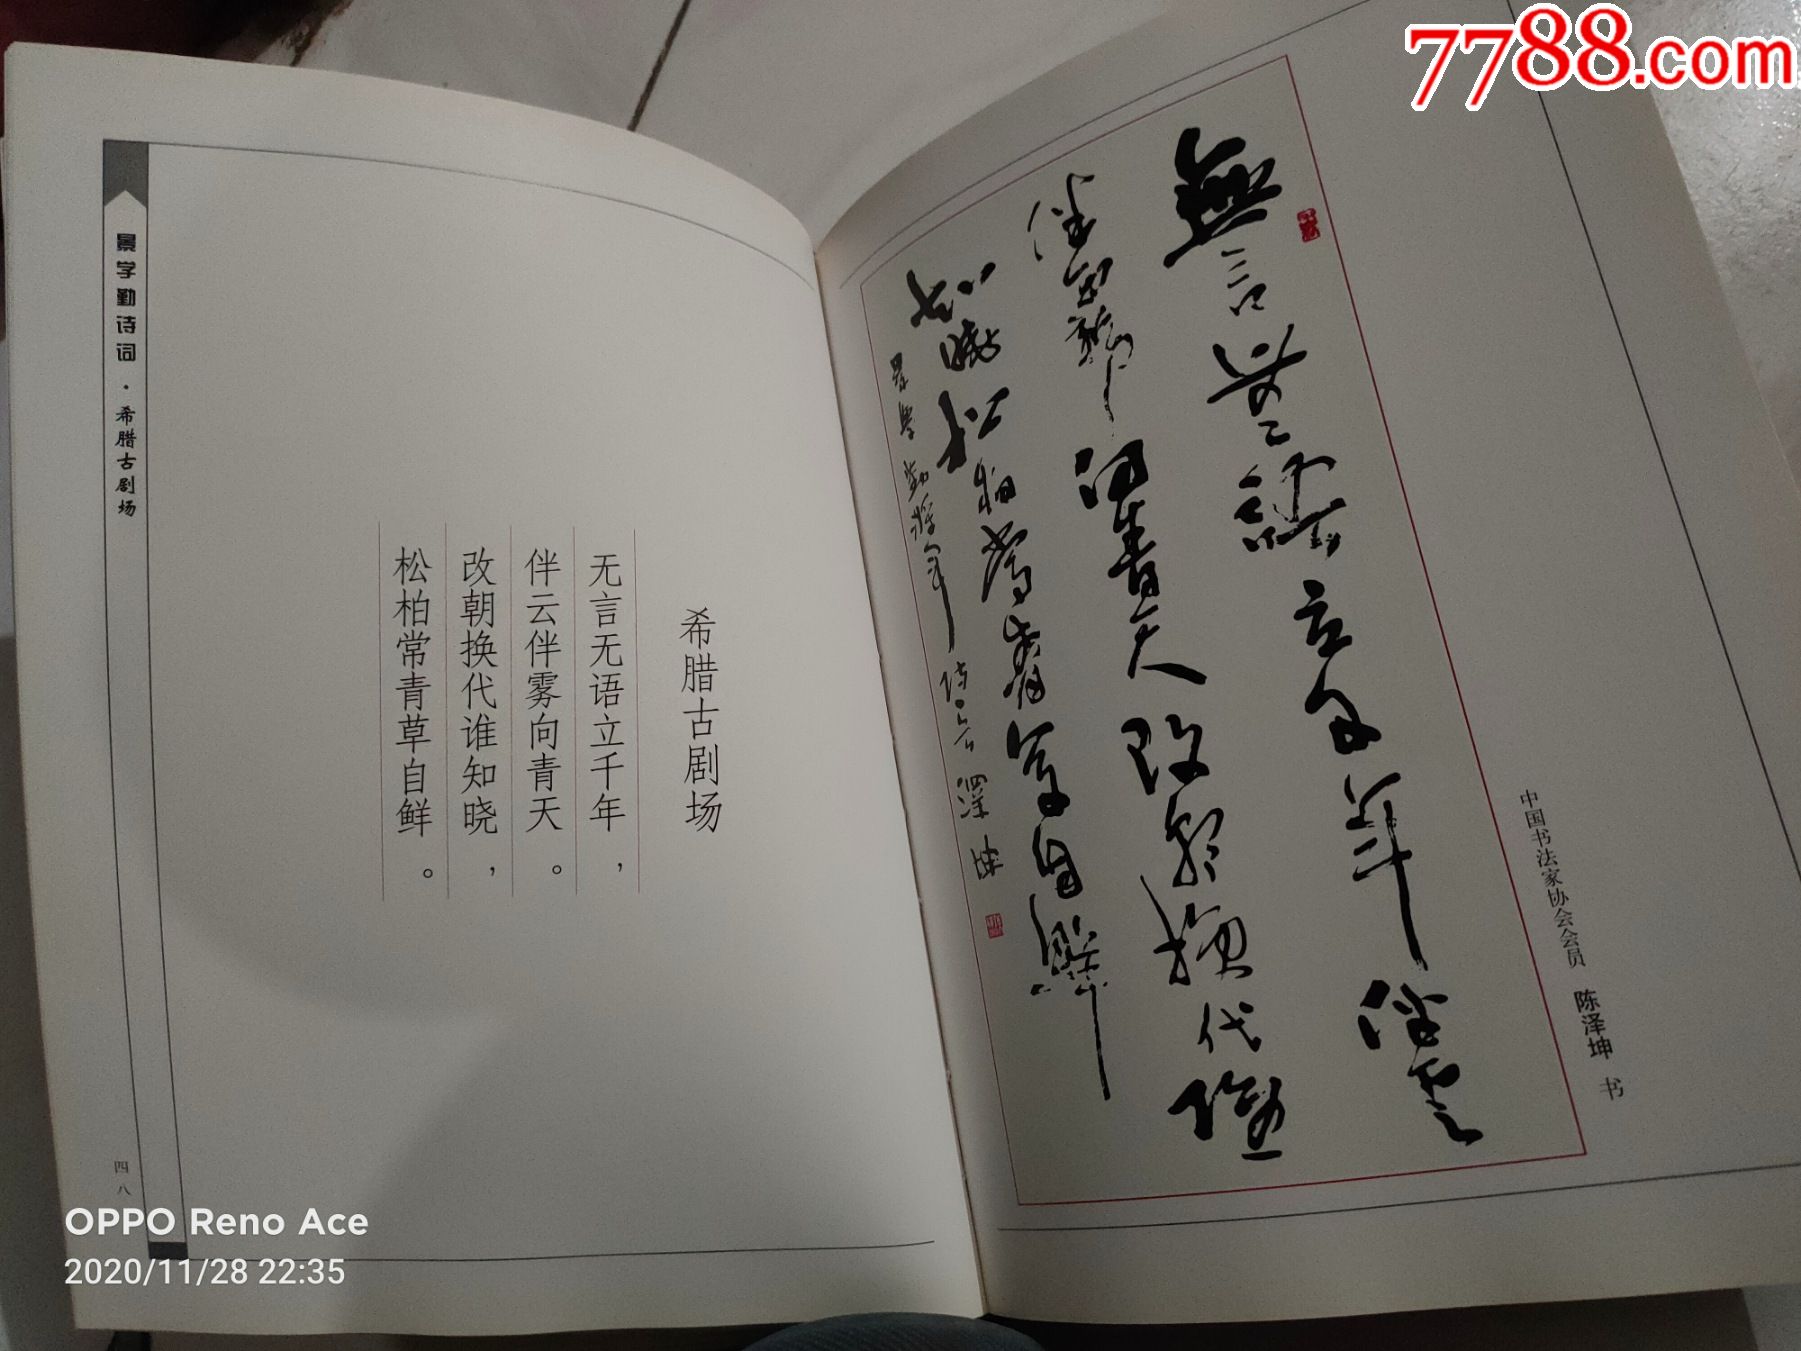 7788.com
景学勤诗词·希腊古剧场
希腊古剧场
无言无语立千年，
伴云伴雾向青天。
改朝换代谁知晓，
松柏常青草自鲜。
四八
無言無語立千年伴雲
伴霧向青天改朝換代誰
知曉松柏常青草自鮮
景學勤
澤坤
中国书法家协会会员 陈泽坤 书
OPPO Reno Ace
2020/11/28 22:35